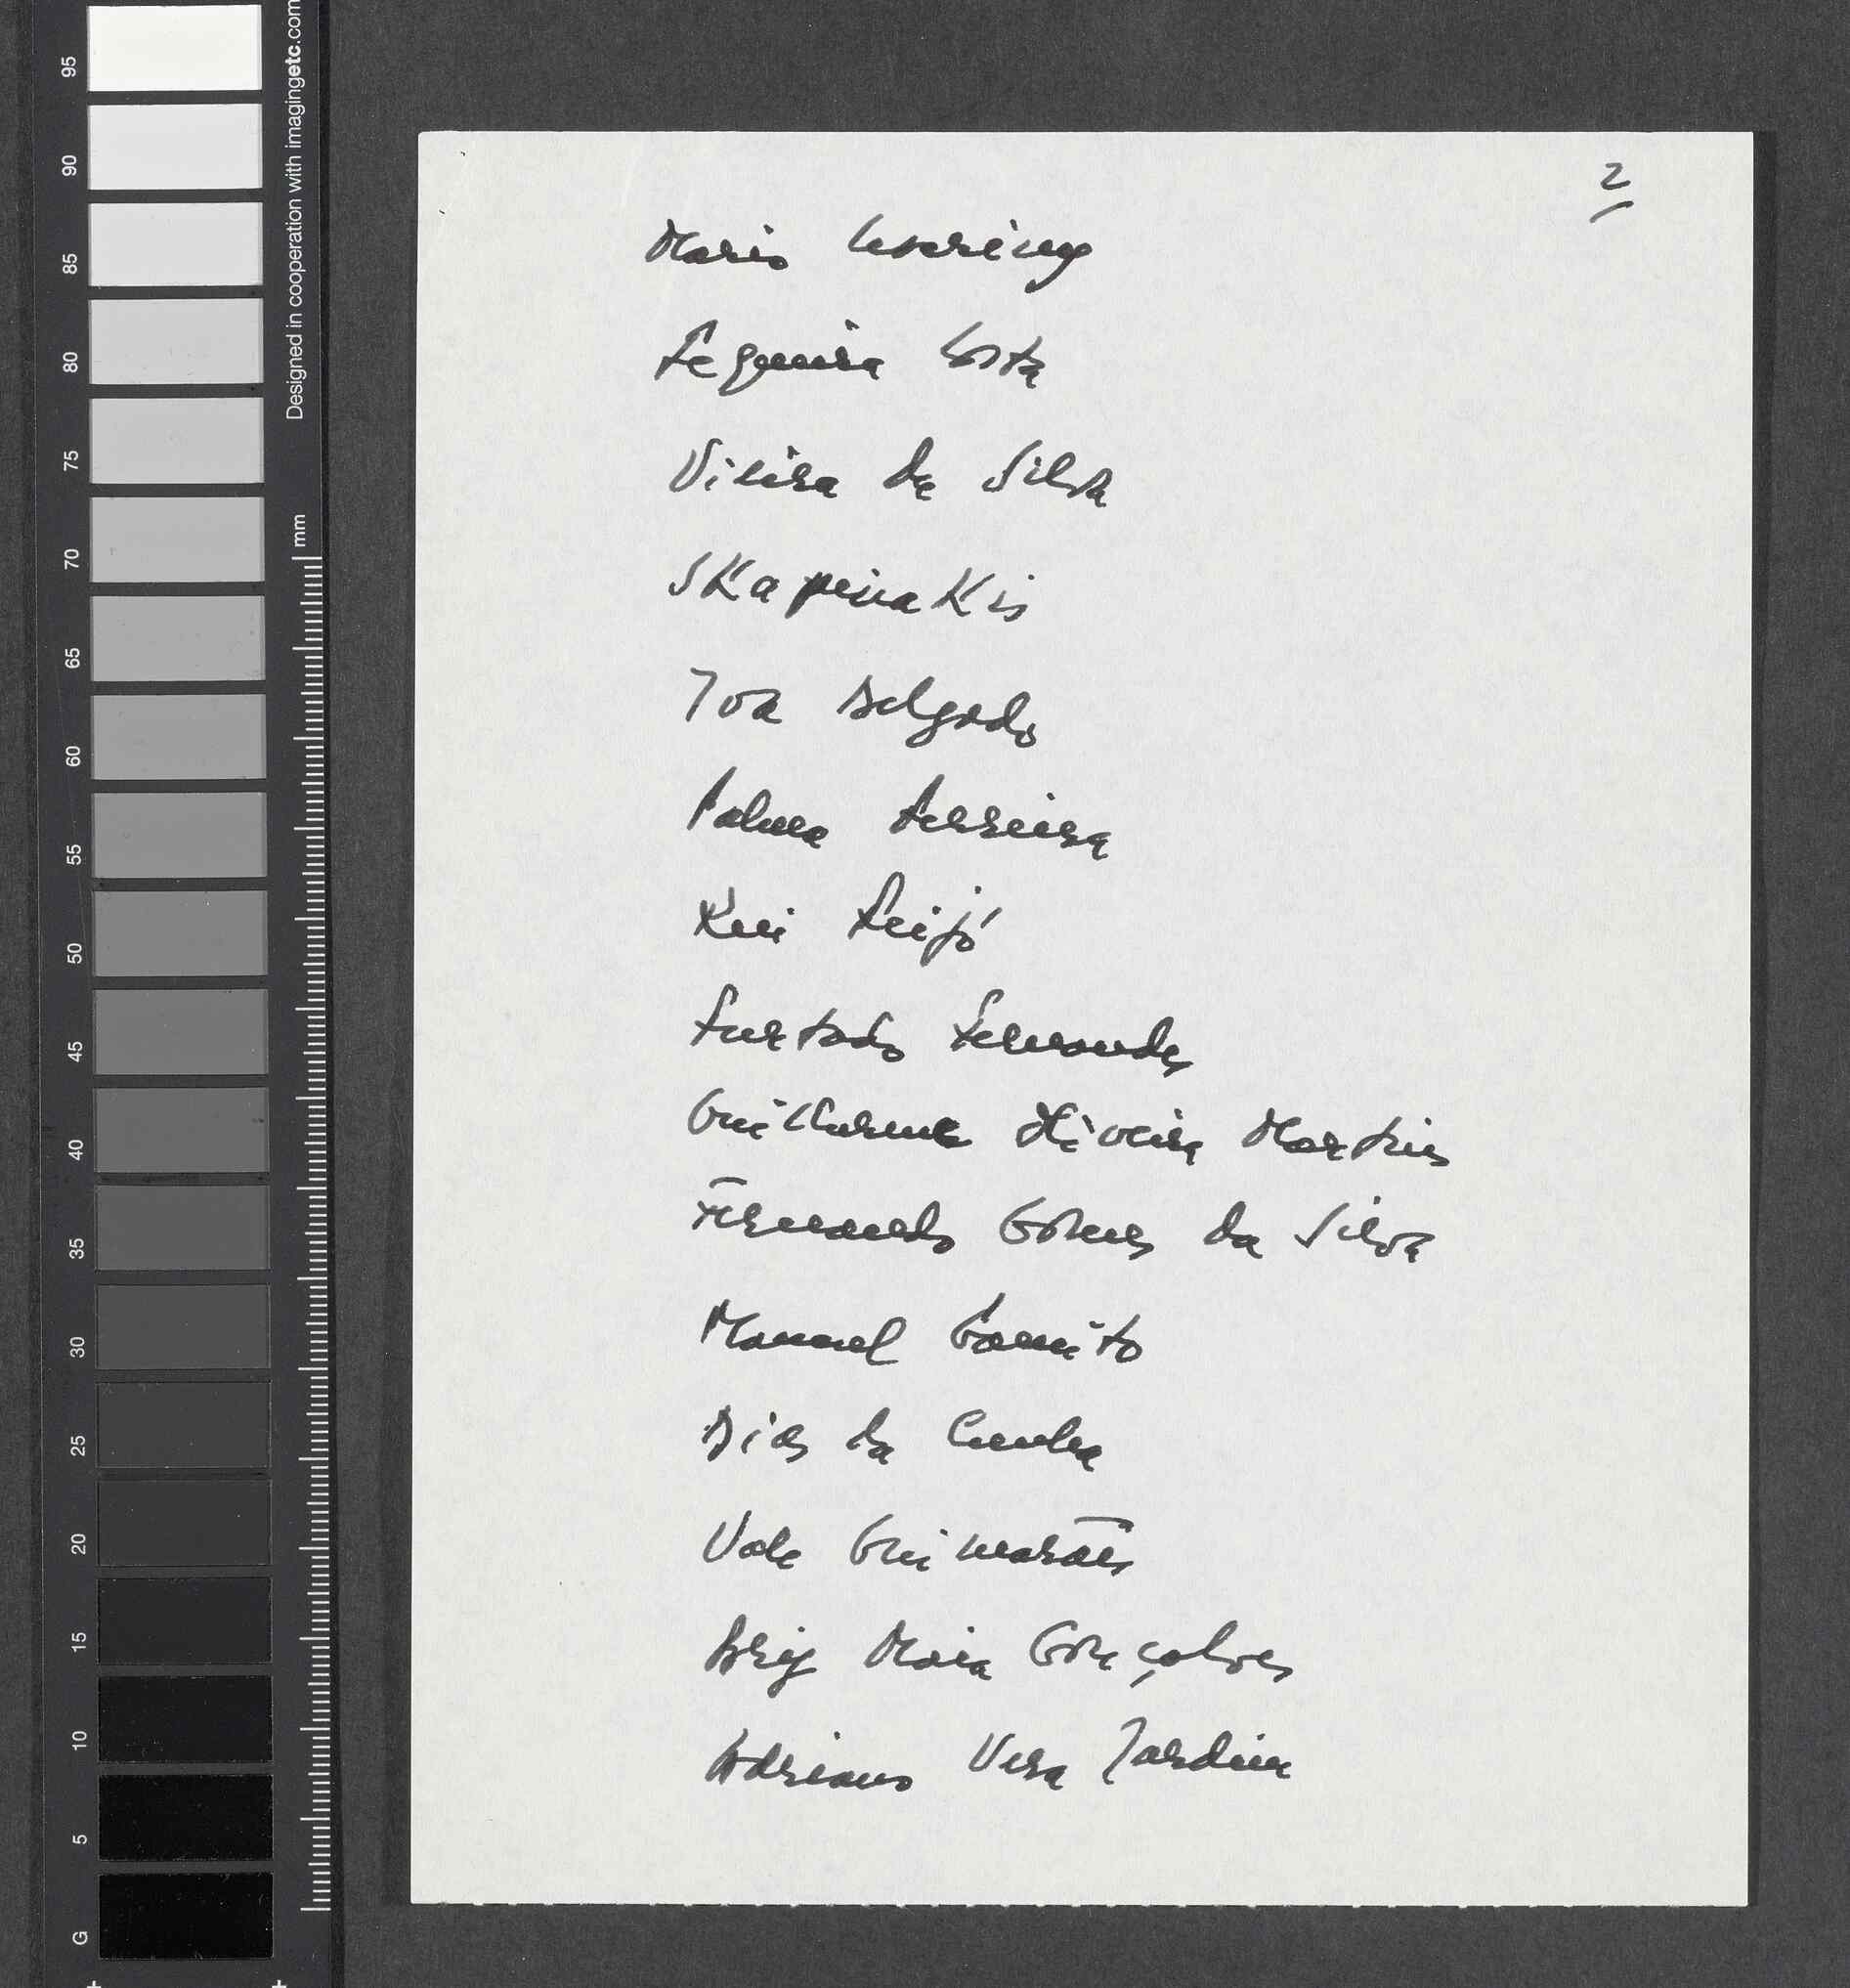 2
Mario
Sequeira Costa
Vieira da Silva
SKapinaKis
Iva Delgado
Palma Ferreira
Rui Feijó
Furtado Fernandes
Guilherme Oliveira Martins
Fernando Gomes da Silva
Manuel Gamito
Dias da Cunha
Vale Guimarães
Brig Maia Gonçalves
Adriano Vera Jardim
Designed in cooperation with imagingetc.com
mm
95
90
85
80
75
70
65
60
55
50
45
40
35
30
25
20
15
10
5
G